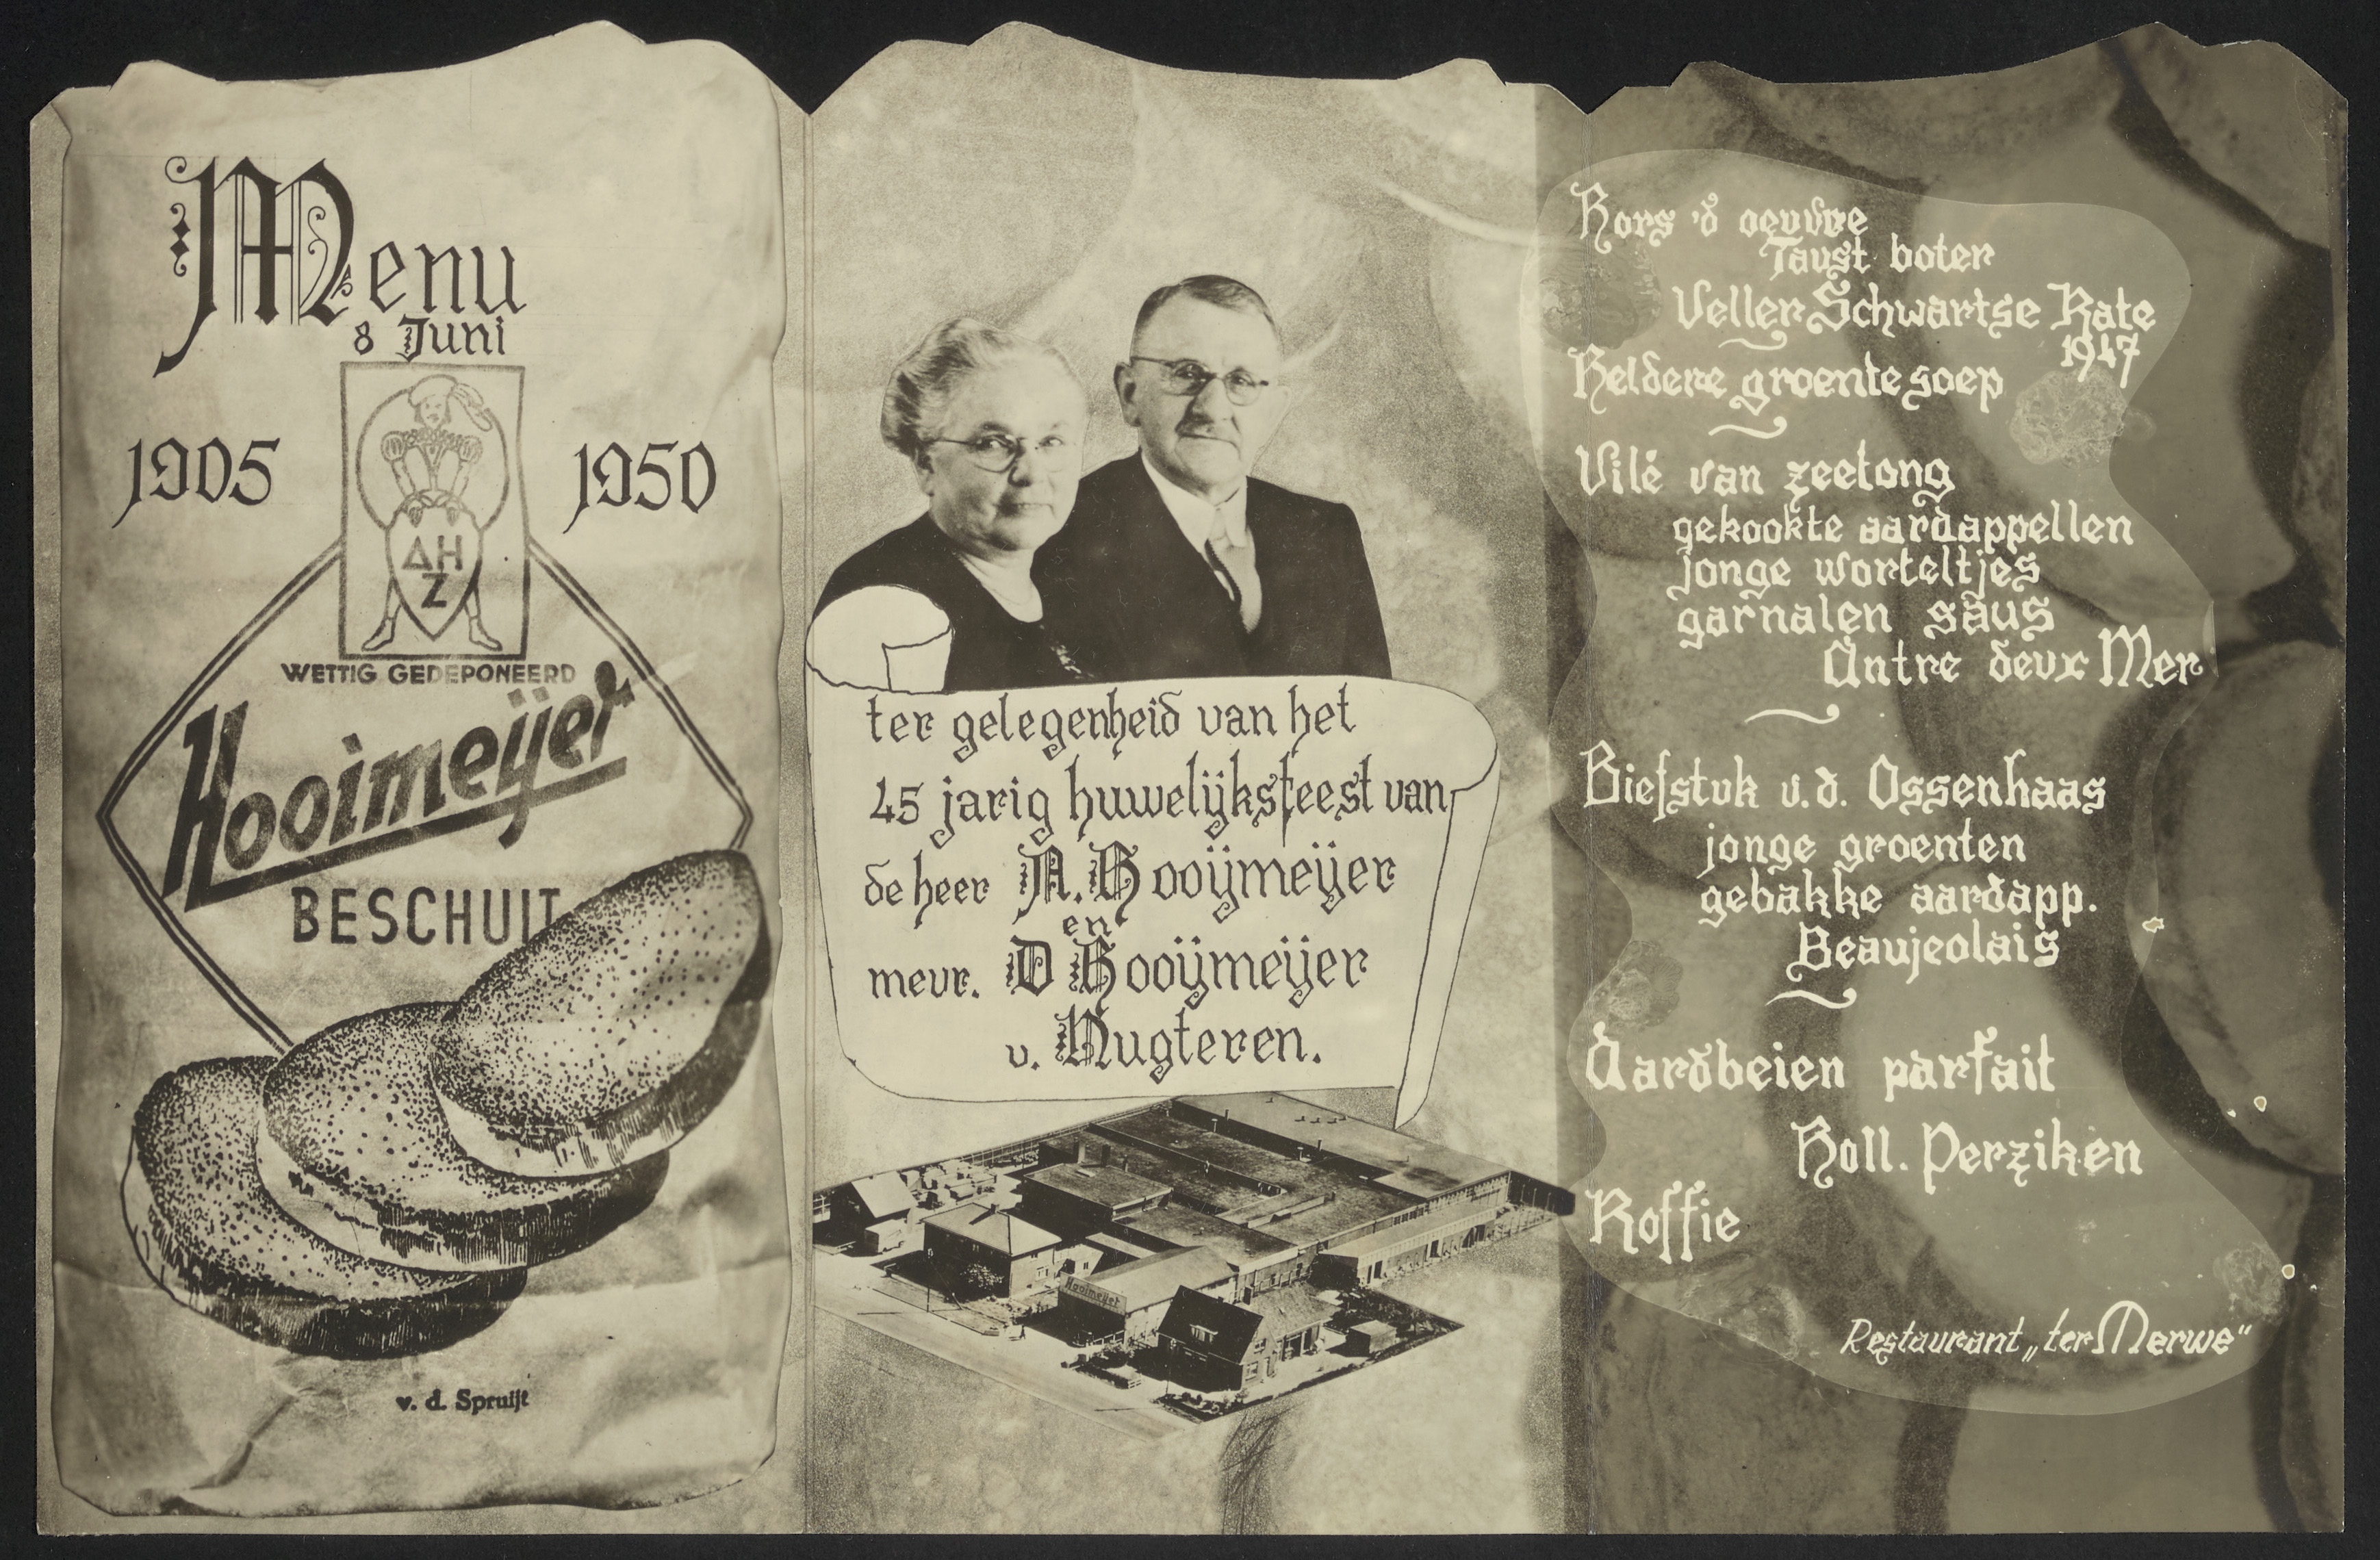 Menu
8 Juni
1905
1950
AH
Z
WETTIG GEDEPONEERD
Hooimeijer
BESCHUIT
v. d. Spruijt
ter gelegenheid van het
45 jarig huwelijksfeest van
de heer A. Hooijmeijer
en
mevr. D Hooijmeijer
v. Nugteren.
Hooimeijer
Hors 'd oeuvre
Taust boter
Veller Schwartse Kate
1947
Heldere groente soep
Vilé van zeetong
gekookte aardappellen
jonge worteltjes
garnalen saus
Antre deux Mer
Biefstuk v.d. Ossenhaas
jonge groenten
gebakke aardapp.
Beaujeolais
Aardbeien parfait
Holl. Perziken
Koffie
Restaurant „ter Merwe"